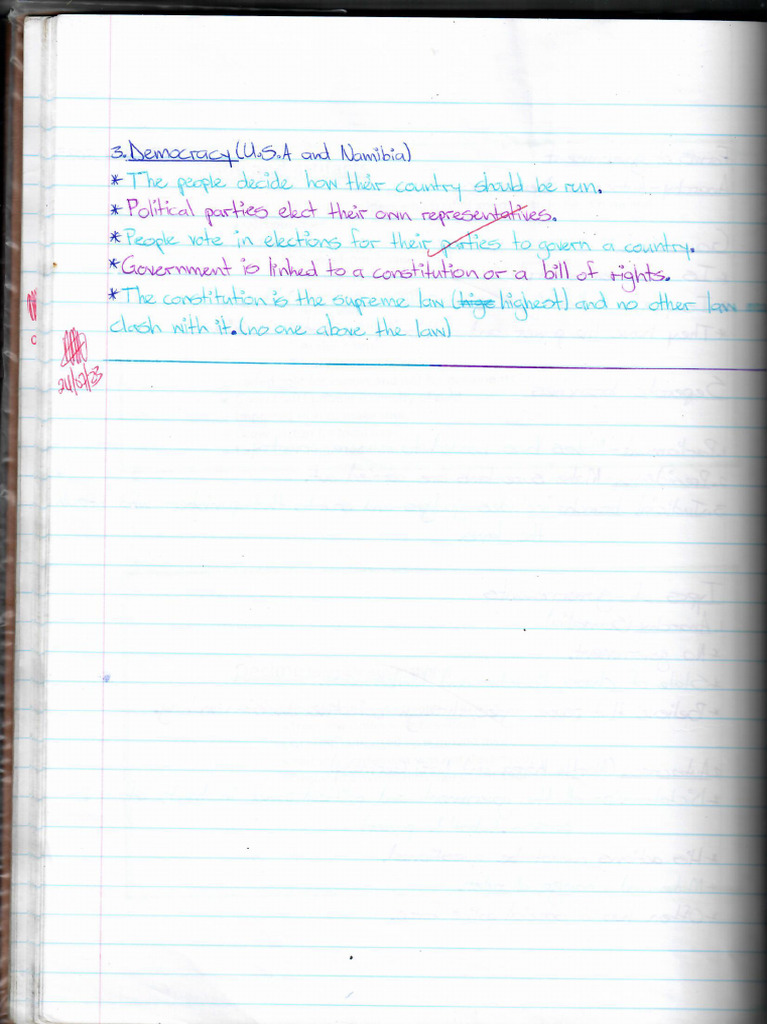 3. Democracy (U.S.A and Namibia)
* The people decide how their country should be run.
* Political parties elect their own representatives.
* People vote in elections for their parties to govern a country.
* Government is linked to a constitution or a bill of rights.
* The constitution is the supreme law (highest) and no other law
clash with it. (no one above the law)
24/07/23